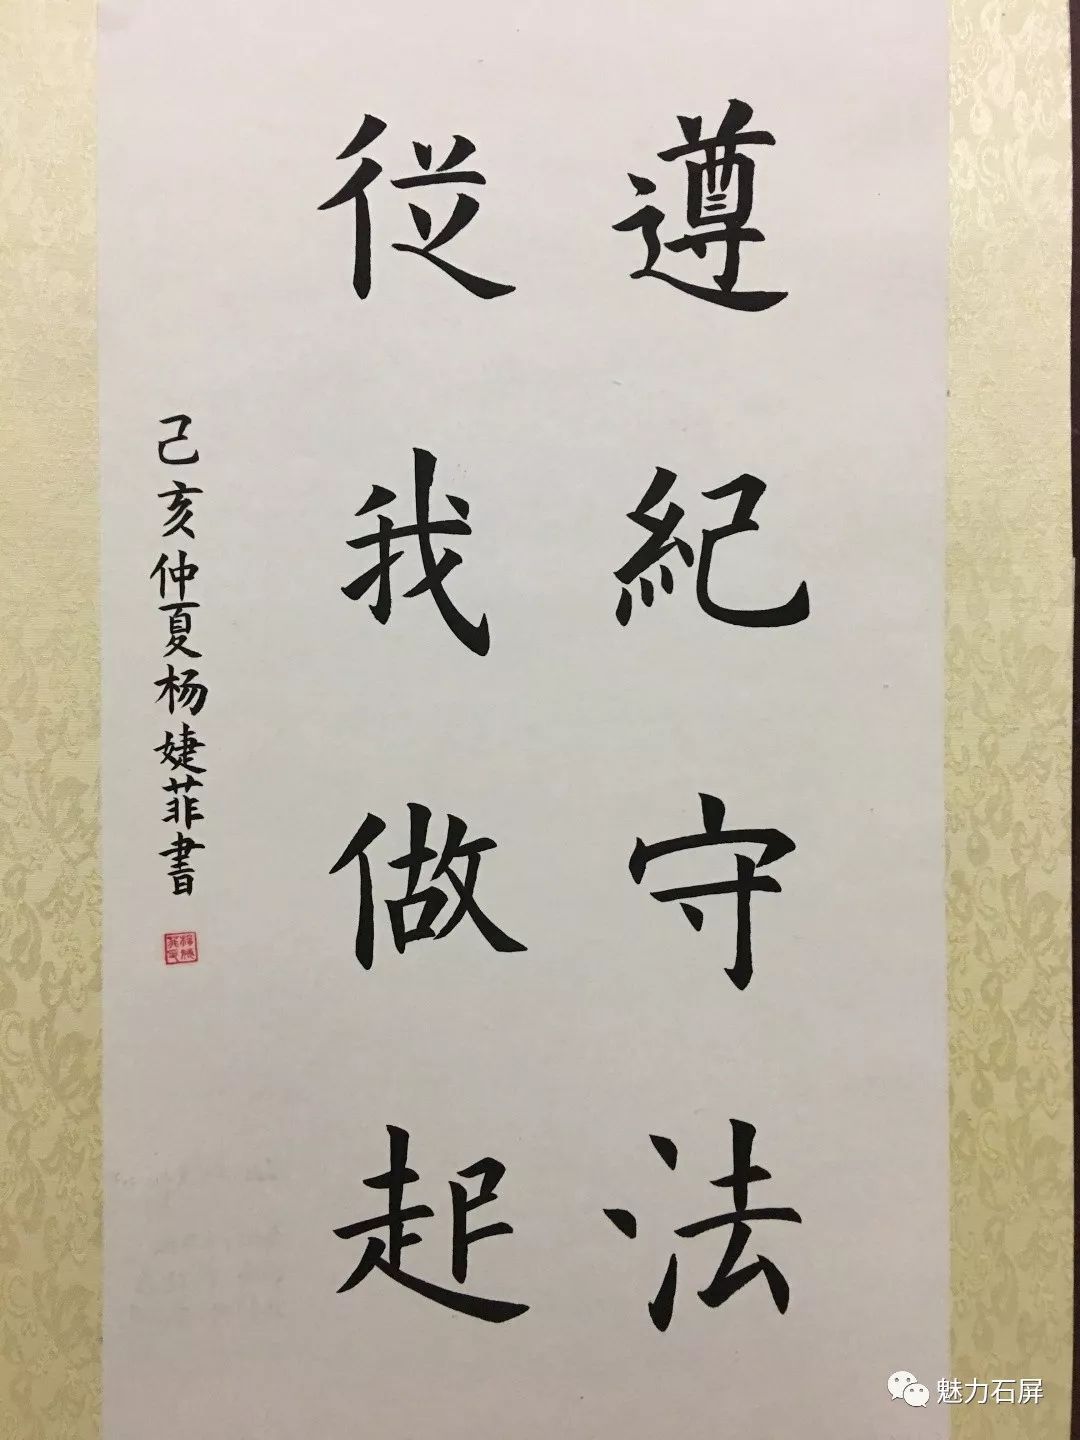 遵紀守法
従我做起
己亥仲夏杨婕菲書
魅力石屏